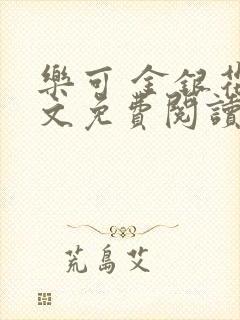 樂可 金銀花
文免費閱讀
荒島艾